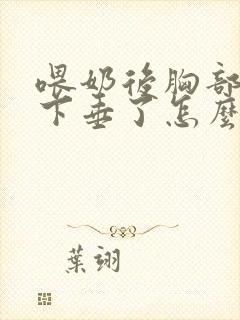 喂奶後胸部
下垂了怎麼
葉翊